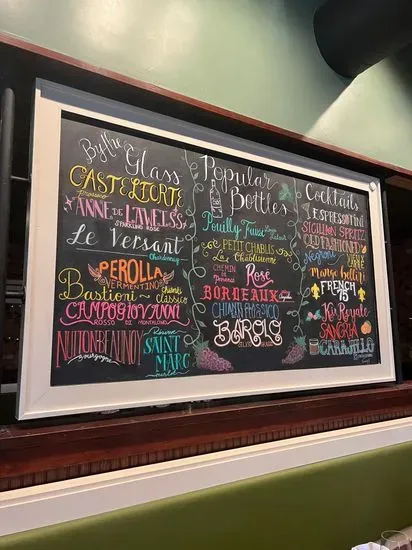 By the Glass
CASTELFORTE
Prosecco
ANNE DE LAWEISS
SPARKLING ROSÉ
Le Versant
Chardonnay
PEROLLA
VERMENTINO
Bastioni
chianti
classico
CAMPOGIOVANNI
ROSSO DI MONTALCINO
NUITON BEAUNOY
Bourgogne
SAINT
MARC
merlot
Popular
Bottles
Pouilly Fuissé
PETIT CHABLIS
La Chablisienne
CHEMIN
DE
Rosé
BORDEAUX
CHIANTI CLASSICO
BAROLO
Cocktails
ESPRESSOTINI
SICILIAN SPRITZ
OLD FASHIONED
Negroni
Mango bellini
FRENCH
75
Kir Royale
SANGRIA
CARAJILLO